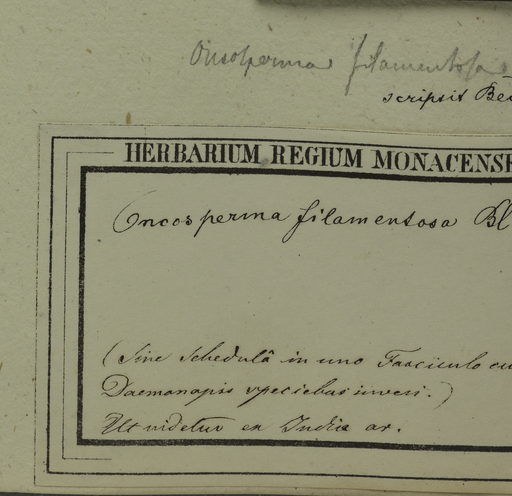 Oncosperma filamentosa
scripsit Bec
HERBARIUM REGIUM MONACENSE
Oncosperma filamentosa Bl
(Sine Schedulâ in uno Fasciculo cu
Daemonopis speciebus inveni.)
Ut videtur ex India or.